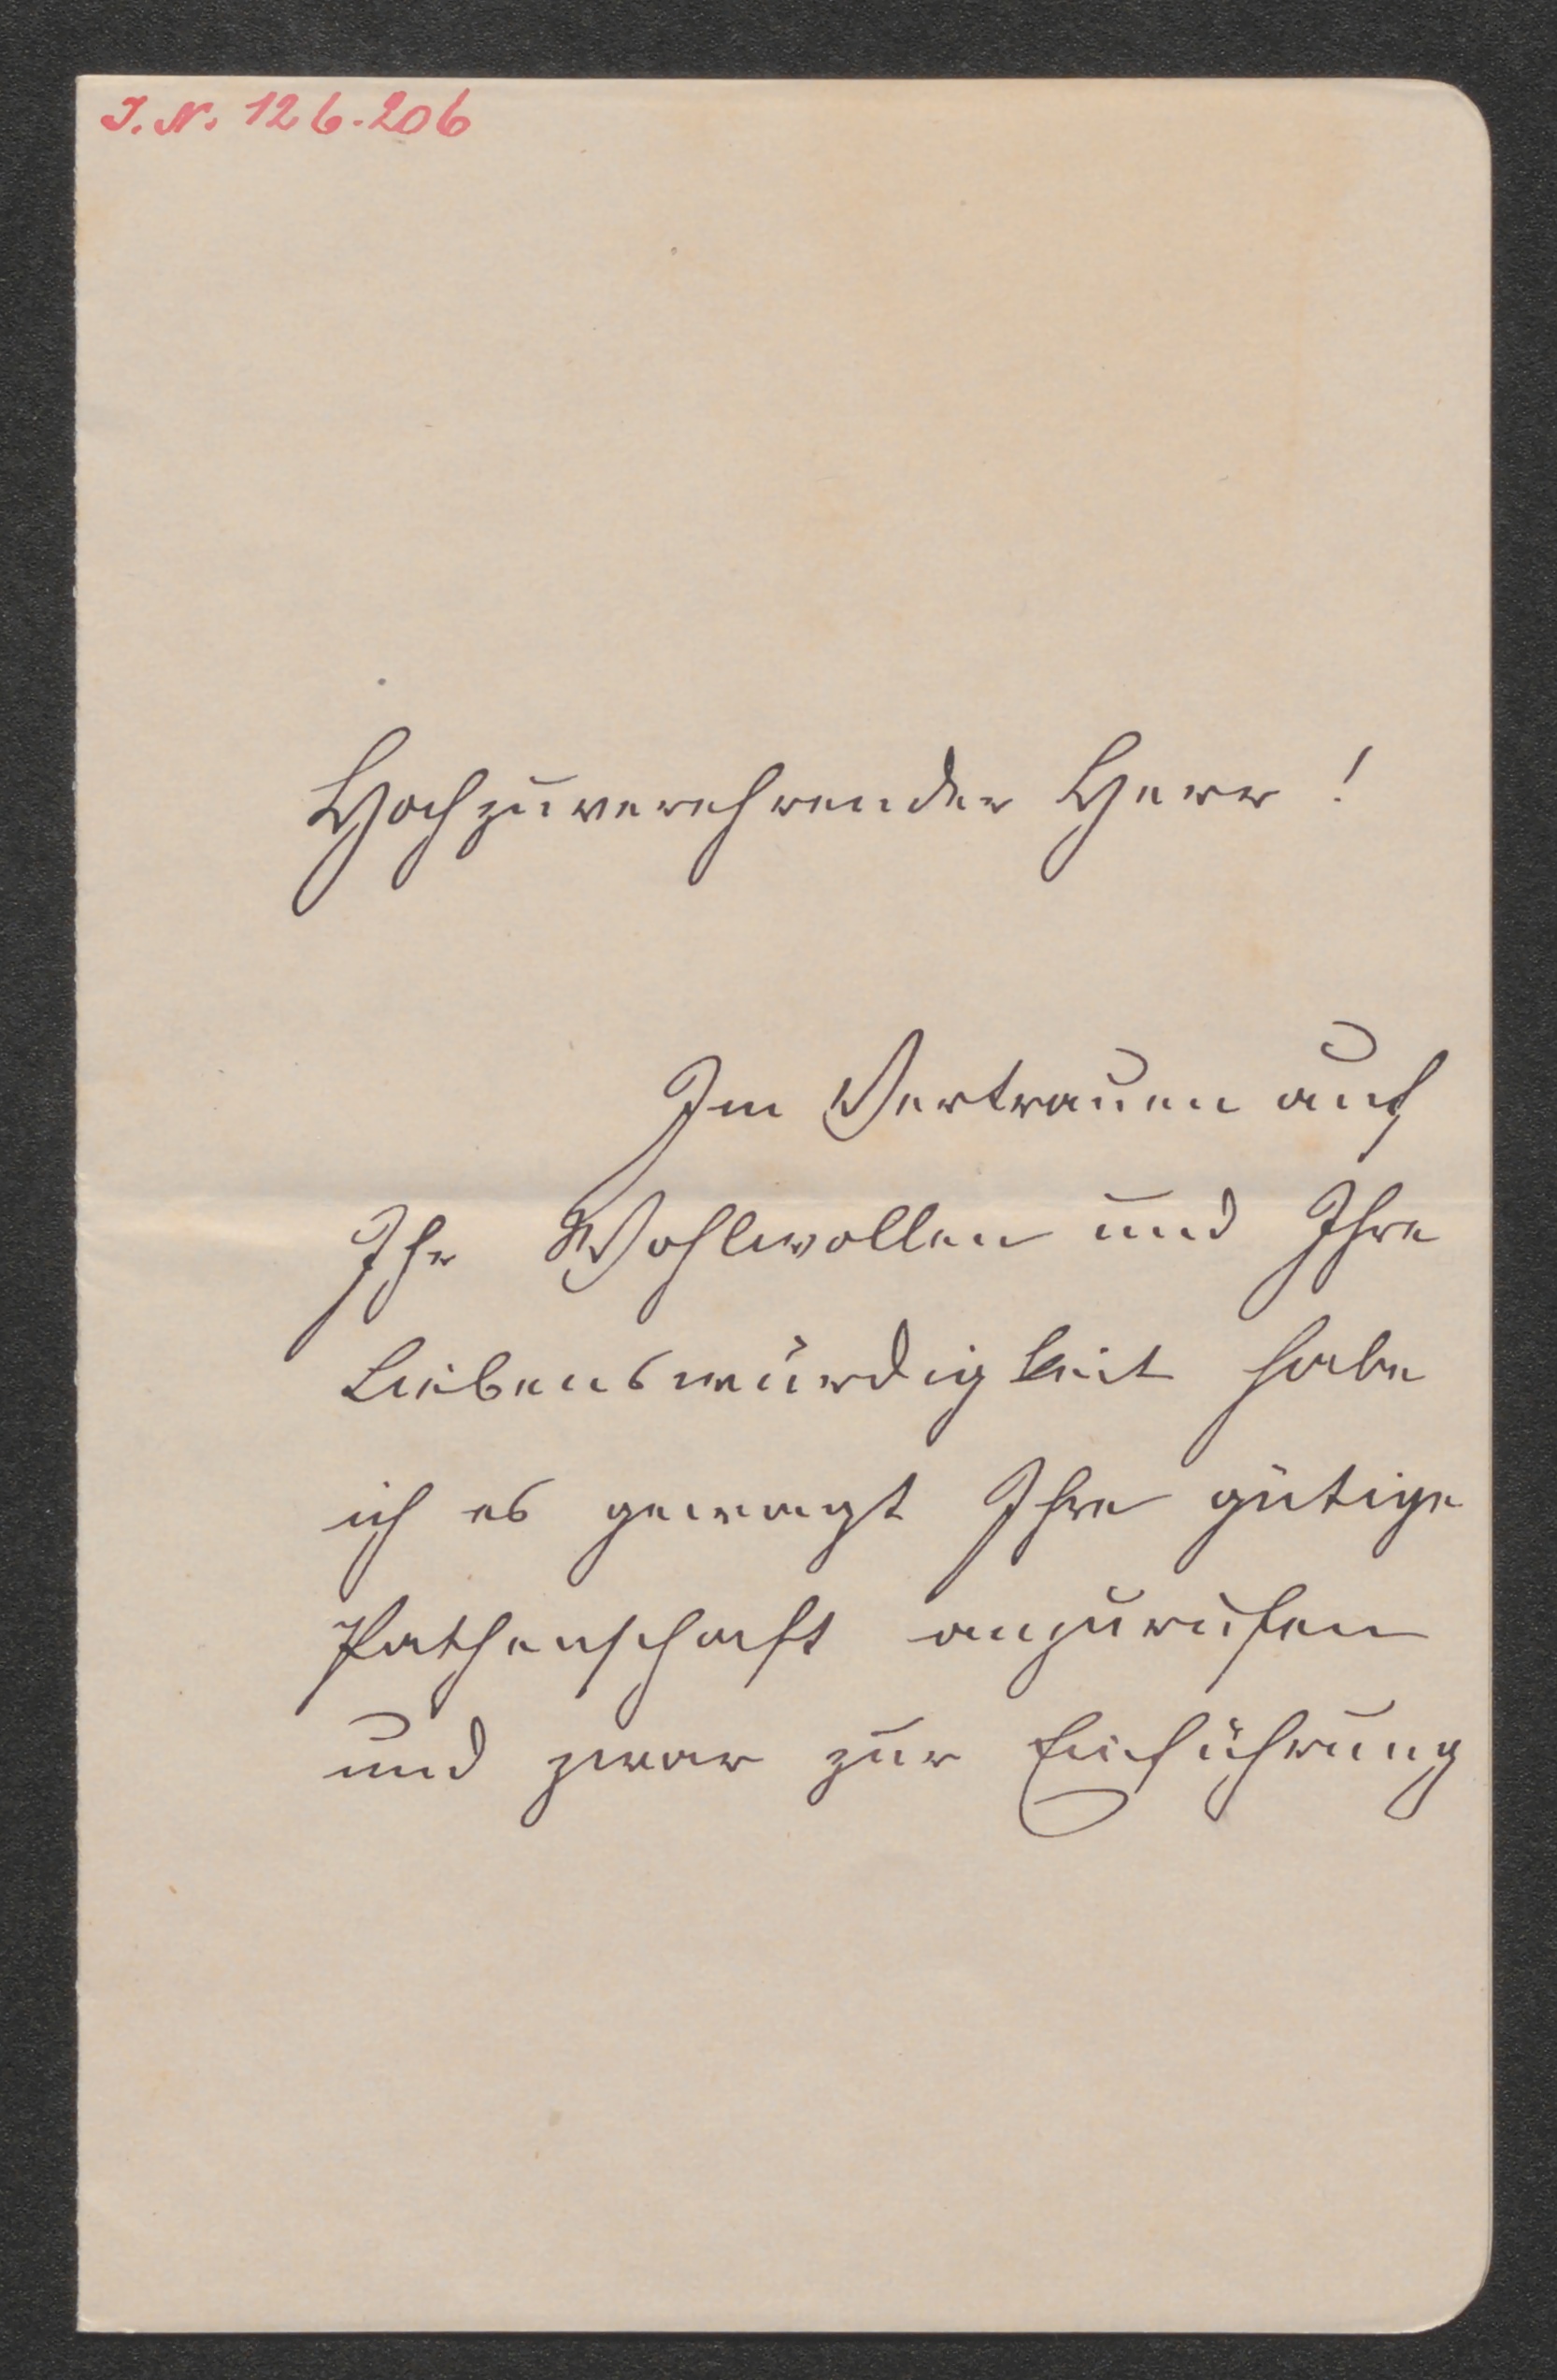 I. N. 126.206
Hochzuverehrender Herr!
Im Vertrauen auf
Ihr Wohlwollen und Ihre
Liebenswürdigkeit habe
ich es gewagt Ihre gütige
Pathenschaft anzurufen
und zwar zur Einführung